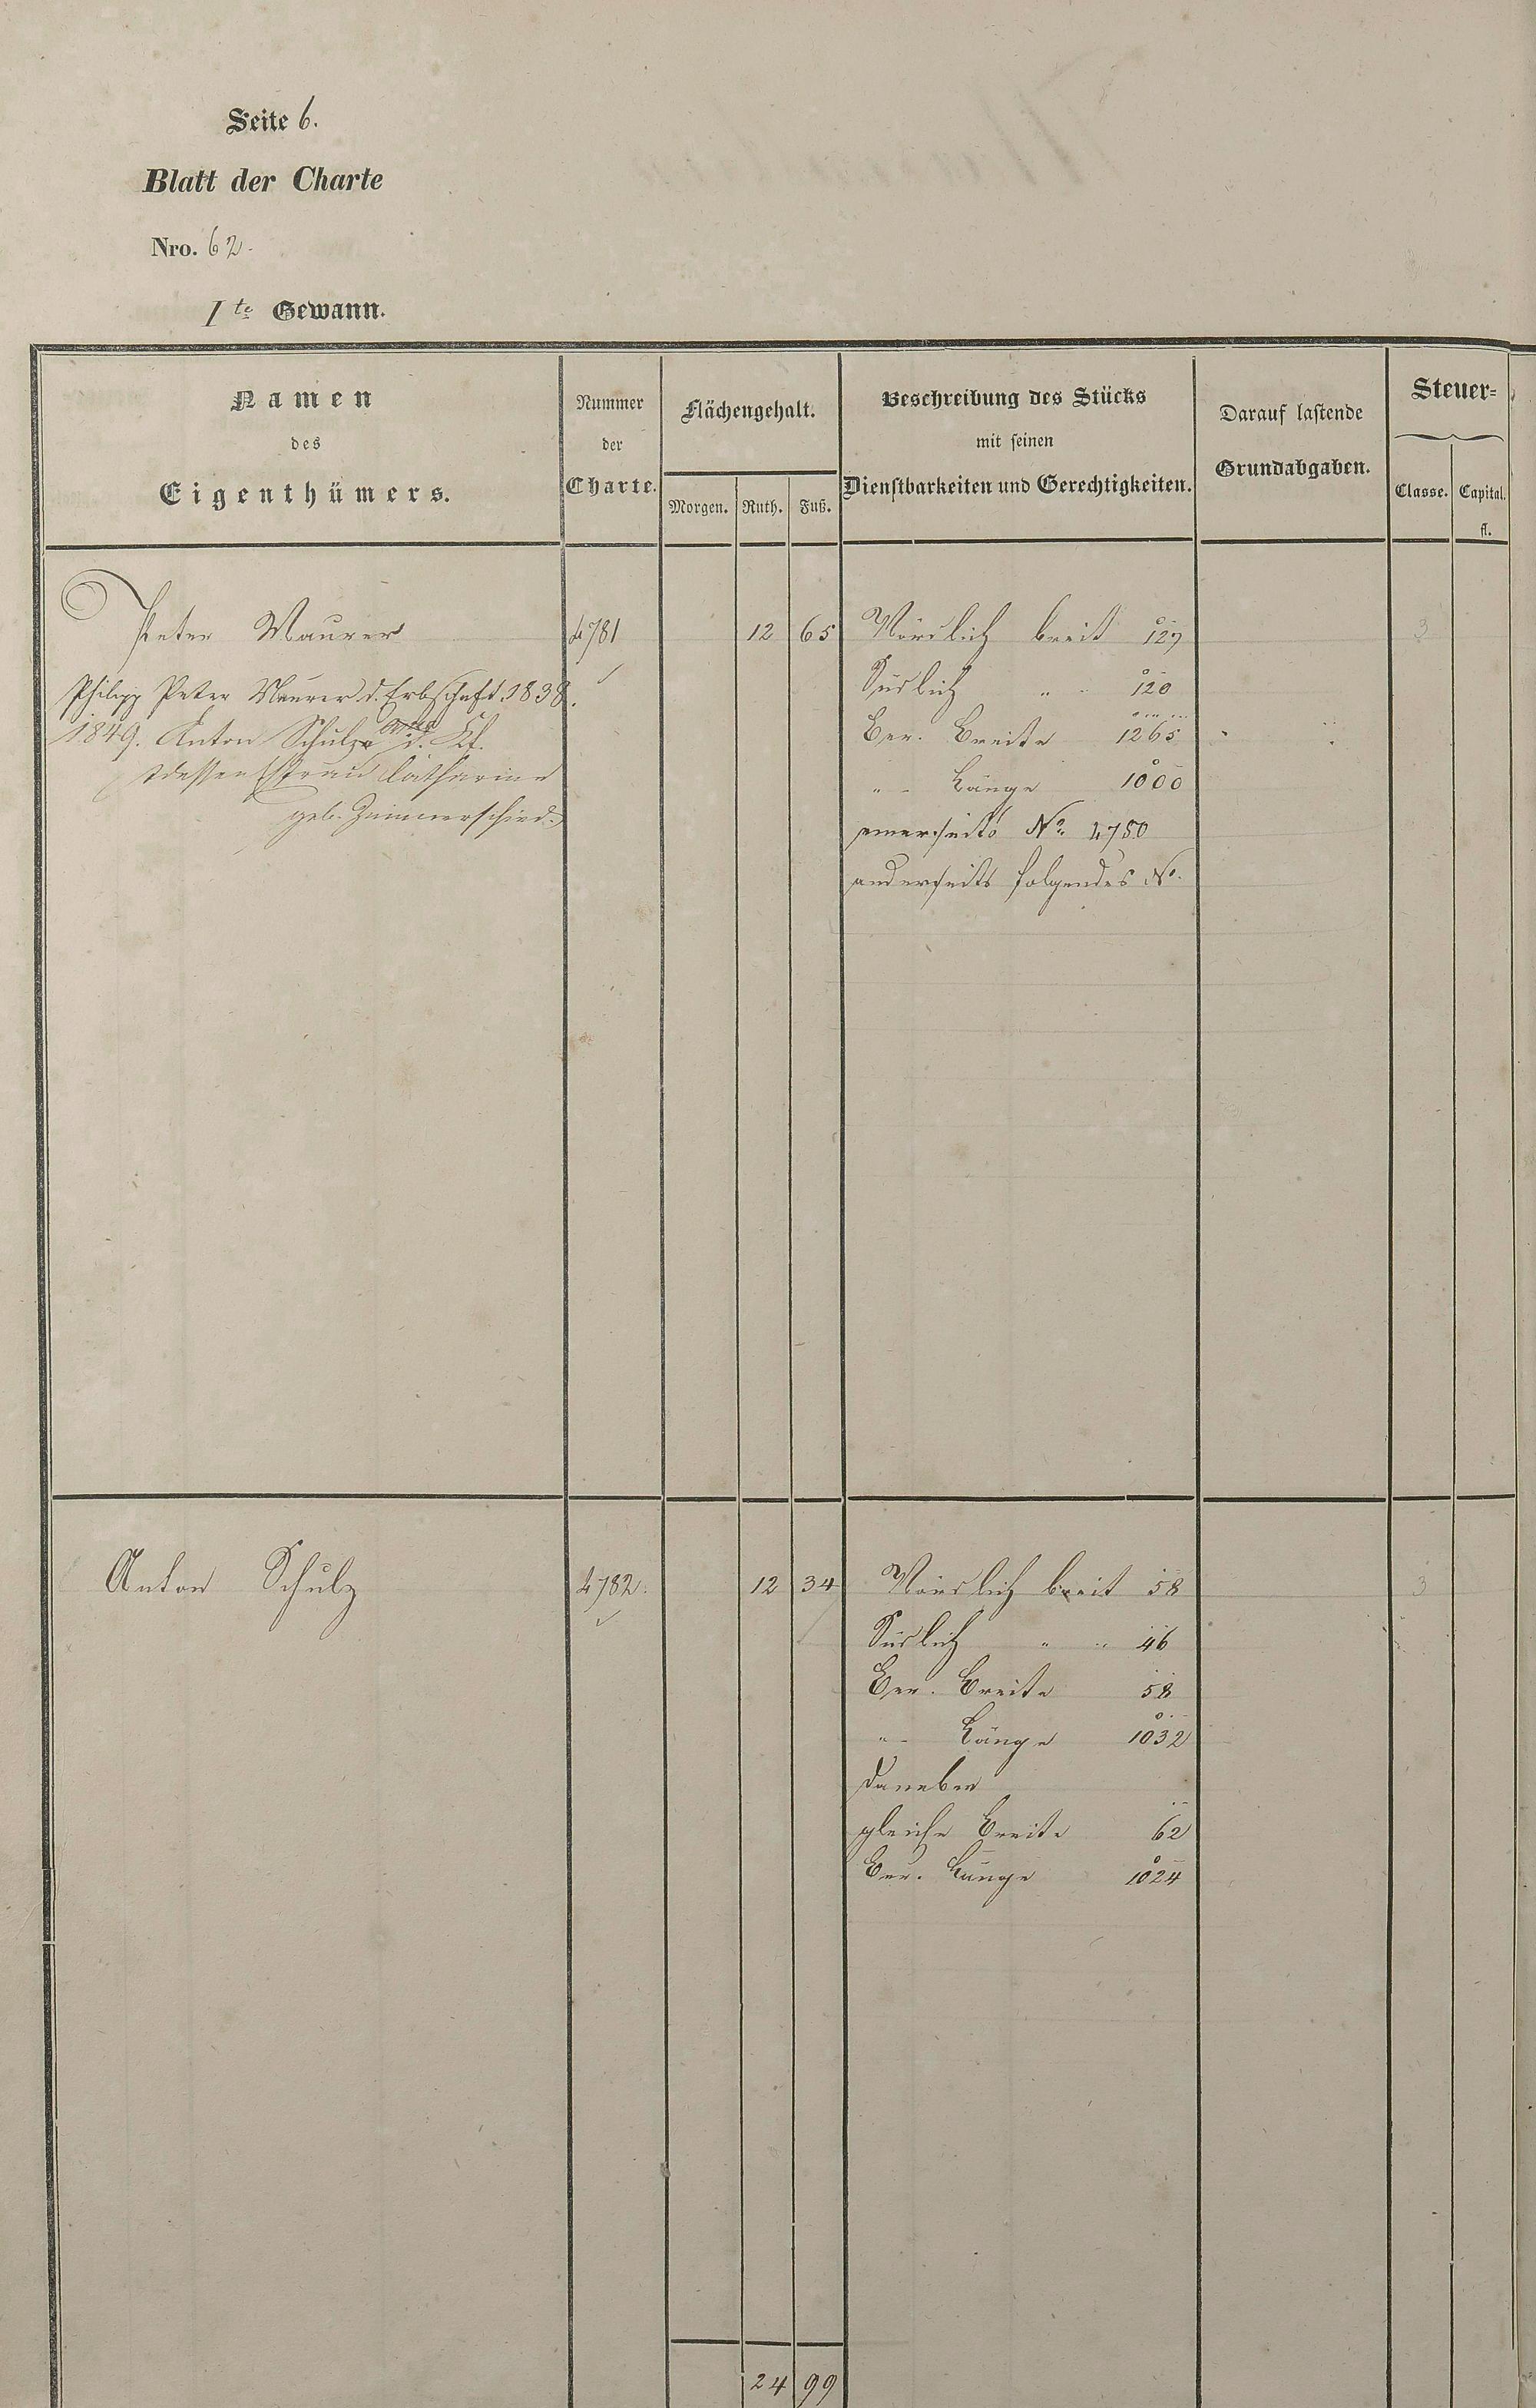 Seite 6.
Blatt der Charte
Nro. 62.
Ite Gewann.
Namen
des
Eigenthümers.
Nummer
der
Charte.
Flächengehalt.
Morgen. Ruth. Fuß.
Beschreibung des Stücks
mit seinen
Dienstbarkeiten und Gerechtigkeiten.
Darauf lastende
Grundabgaben.
Steuer=
Classe. Capital.
fl.
Peter Maurer 4781 12 65 Nördlich breit 127 3
Philipp Peter Maurer d. Erbschaft 1838. Südlich " " 120
1849. Anton Schulz d. Kf. Ber. Breite 1265
dessen Ehfrau Catharine " - Länge 1000
geb. Zimmerschied. einerseits No. 4780
anderseits folgendes No.
Anton Schulz 4782. 12 34 Nördlich breit 58 3
Südlich " " 46
Ber. Breite 58
" - Länge 1032
daneben
gleiche Breite 62
Ber. Länge 1024
24 99